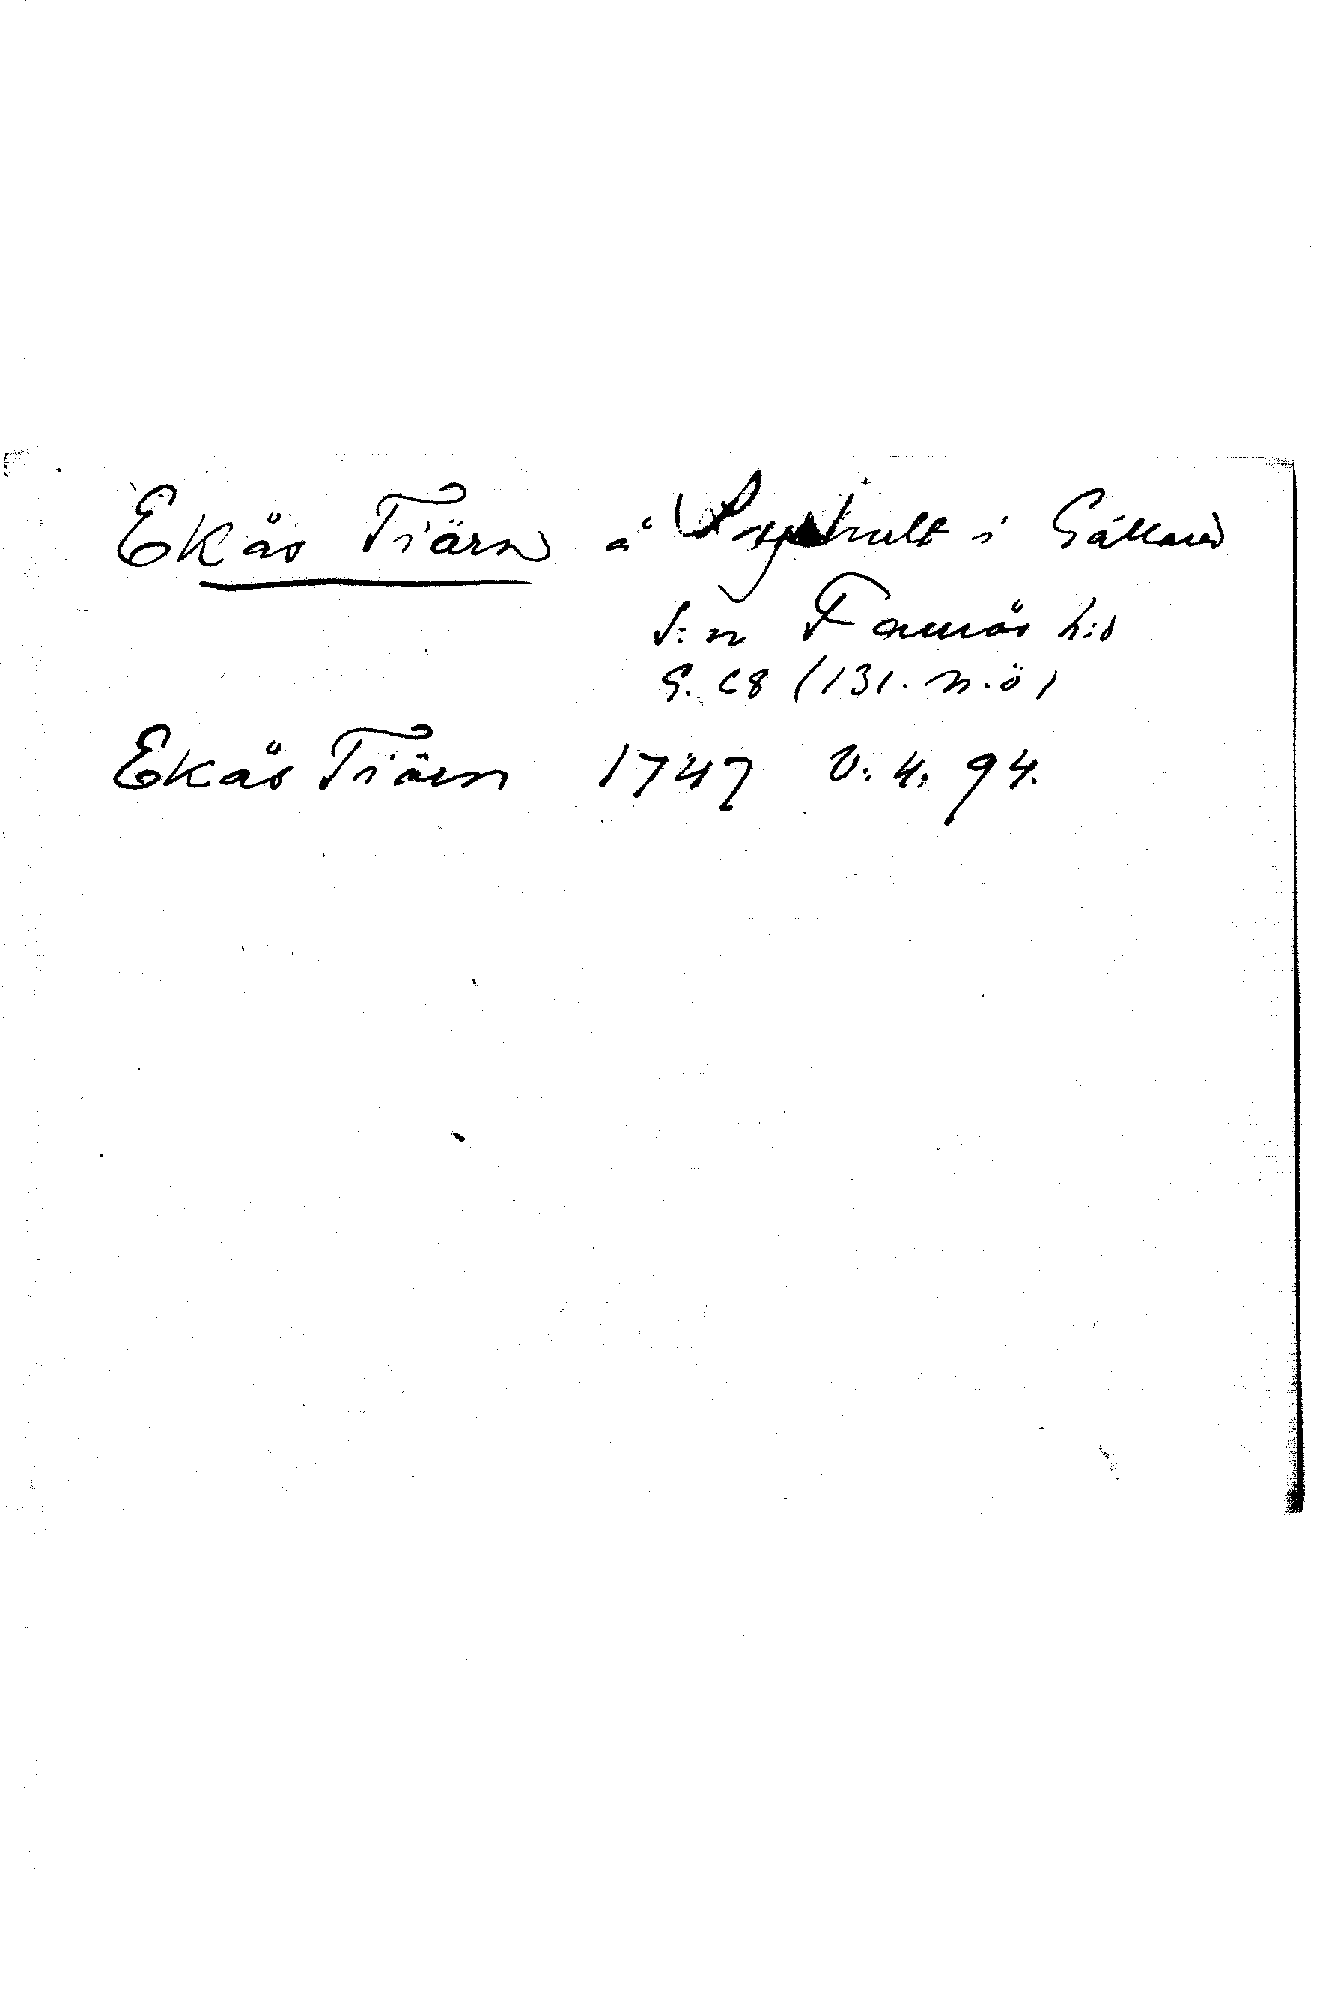 Ekås Tiärn å Syhult i Gällared
s:n Faurås h:d
G. C8 (131. n.ö)
Ekås Tiärn 1747 V. 4. 94.